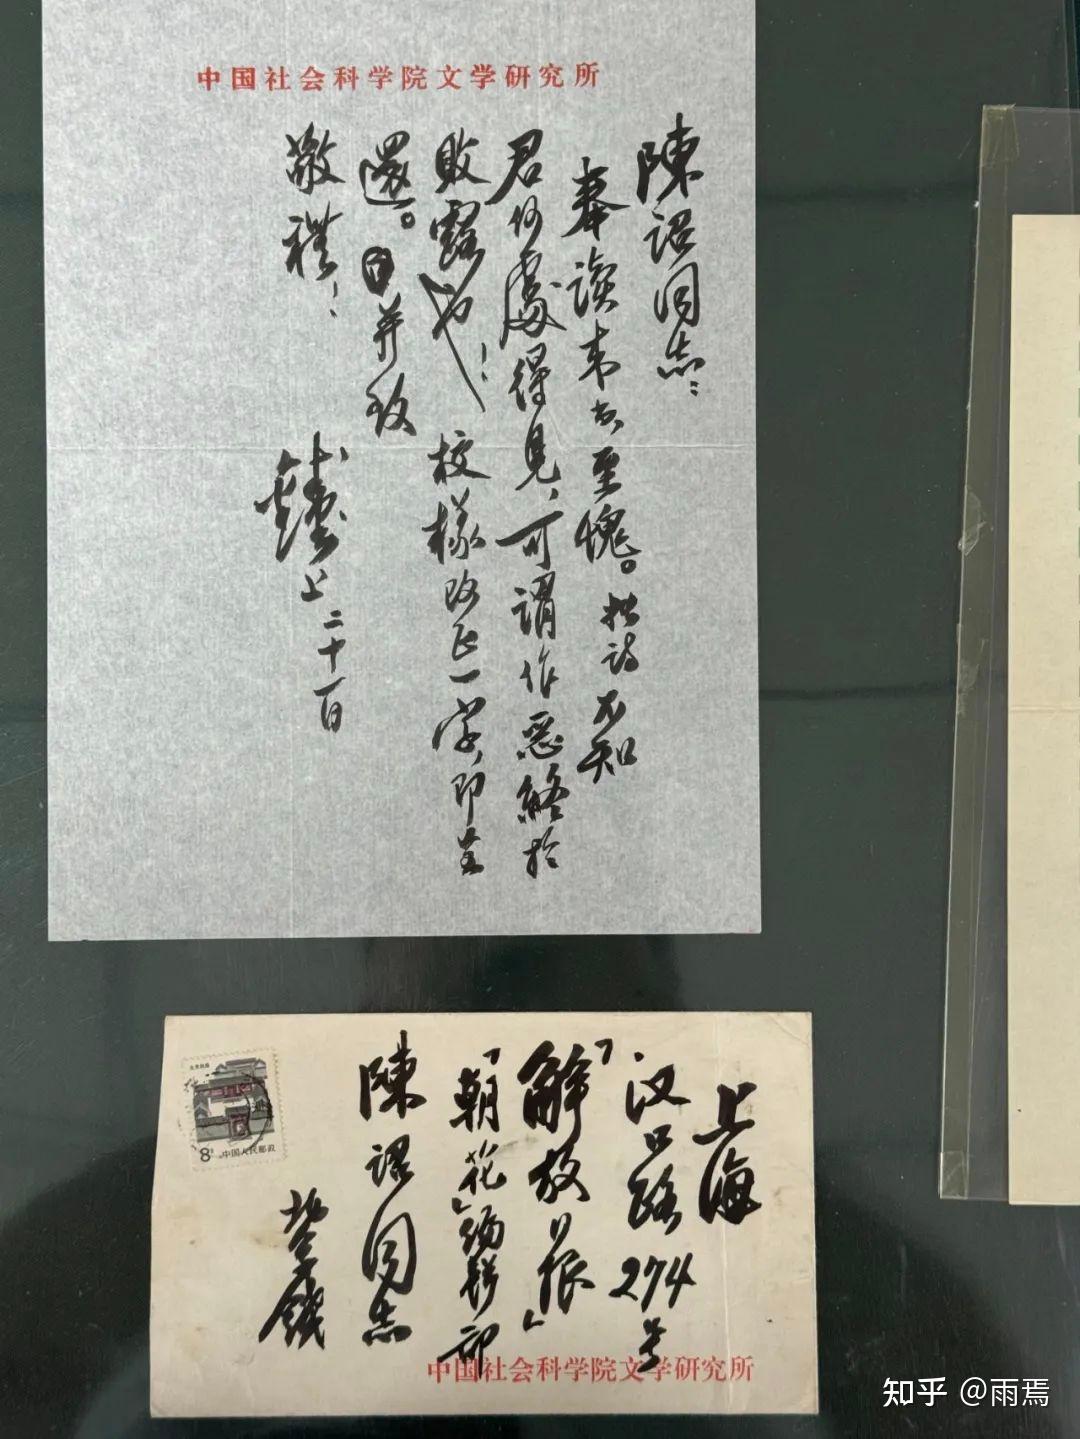 中国社会科学院文学研究所
陳詔同志：
奉讀來書至愧。拙詩不知
君何處得見，可謂作惡終於
敗露也！校樣改正一字，即呈
還。并致
敬禮！
上 二十一日
上海
汉口路274号
「解放日报」
「朝花」编辑部
陳詔同志
北京錢
8
中国人民邮政
中国社会科学院文学研究所
知乎 @雨焉